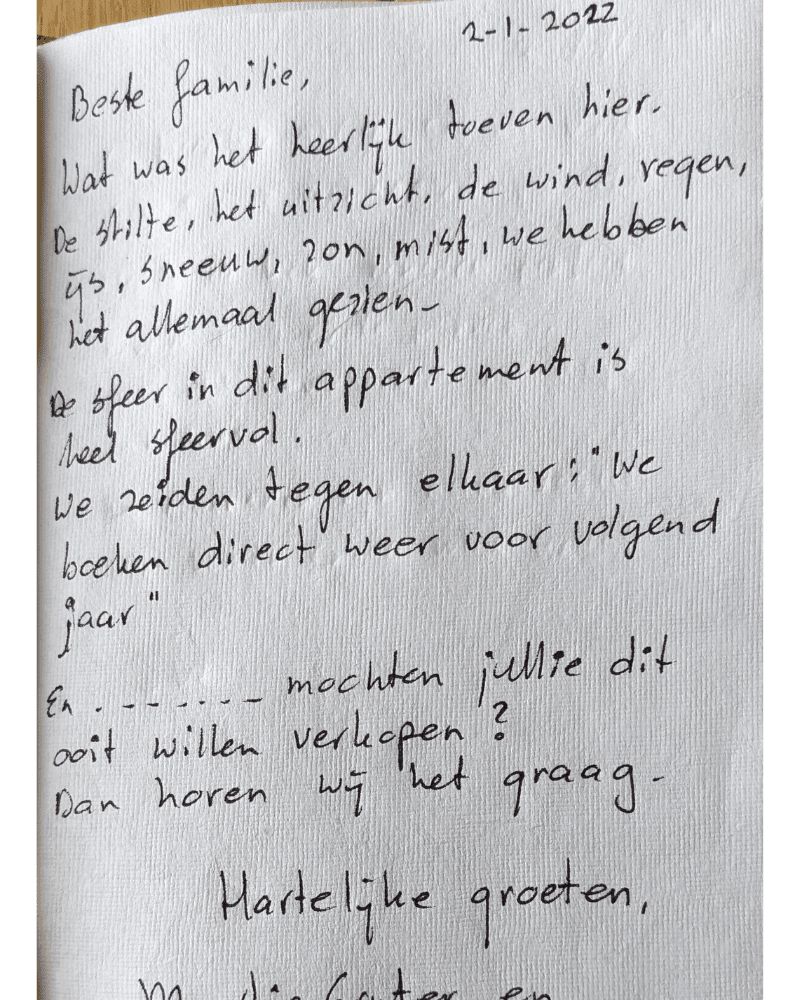 2-1-2022
Beste familie,
Wat was het heerlijk toeven hier.
De stilte, het uitzicht, de wind, regen,
ijs, sneeuw, zon, mist, we hebben
het allemaal gezien-
De sfeer in dit appartement is
heel sfeervol.
We zeiden tegen elkaar: "We
boeken direct weer voor volgend
jaar"
En .------ mochten jullie dit
ooit willen verkopen?
Dan horen wij het graag-
Hartelijke groeten,
en